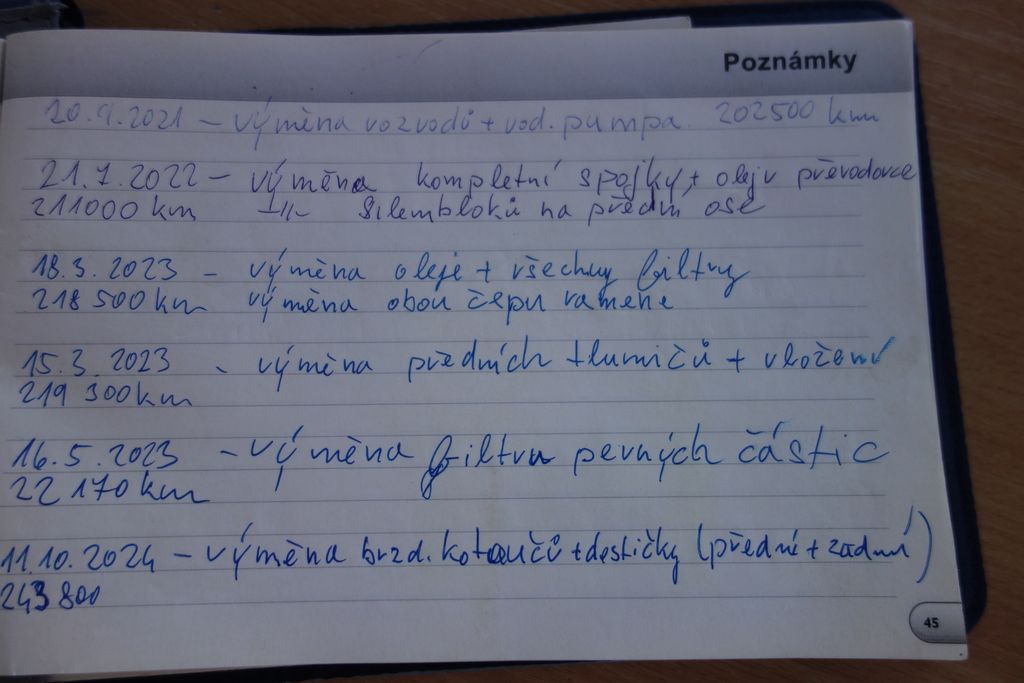 Poznámky
20.9.2021 – výměna rozvodů + vod. pumpa. 202500 km
21.7.2022 – výměna kompletní spojky, + olej v převodovce
211000 km –//– silembloků na přední ose
18.3.2023 – výměna oleje + všechny filtry
218 500 km výměna obou čepu ramene
15.3.2023 - výměna předních tlumičů + vložení
219 300 km
16.5.2023 - výměna filtru pevných částic
22 170 km
11.10.2024 – výměna brzd. kotoučů + destičky (přední + zadní)
243 800
45